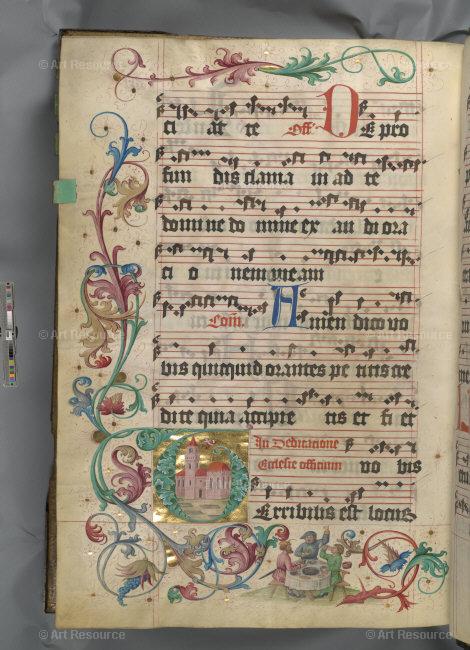 © Art Resource
© Art Resource
© Art Resource
ci at te Off. DE pro
fun dis clama ui ad te
domine do mine ex au di ora
ci o nem meam
Com. Amen dico vo
bis quicquid orantes pe titis cre
dite quia accipie tis et fi et
In Dedicatione
Ecclesie officium vo bis
Erribilis est locus
© Art Resource
© Art Resource
© Art Resource
© Art Resource
© Art Resource